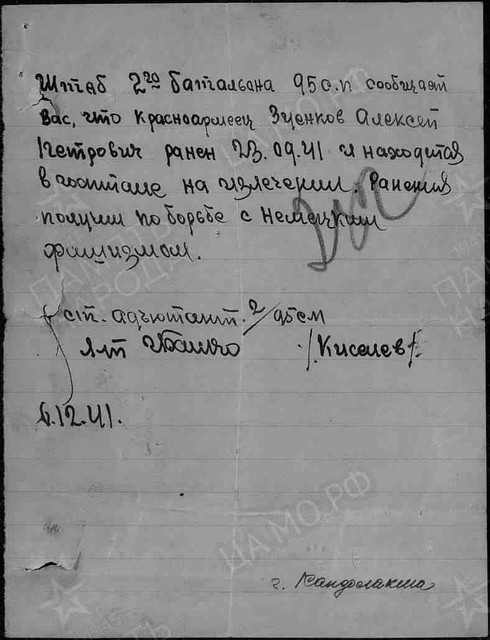 Штаб 2го батальена 95 с.п сообщает
Вас, что Красноармеец Зуенков Алексей
Петрович ранен 23.09.41 и находится
в госпитале на излечении. Ранения
получил по борьбе с немецким
фашизмом.
ст. адъютант 2/95 сп
/Киселев/
6.12.41.
г. Кандалакша
ЦАМО.РФ
ПАМЯТЬ
НАРОДА